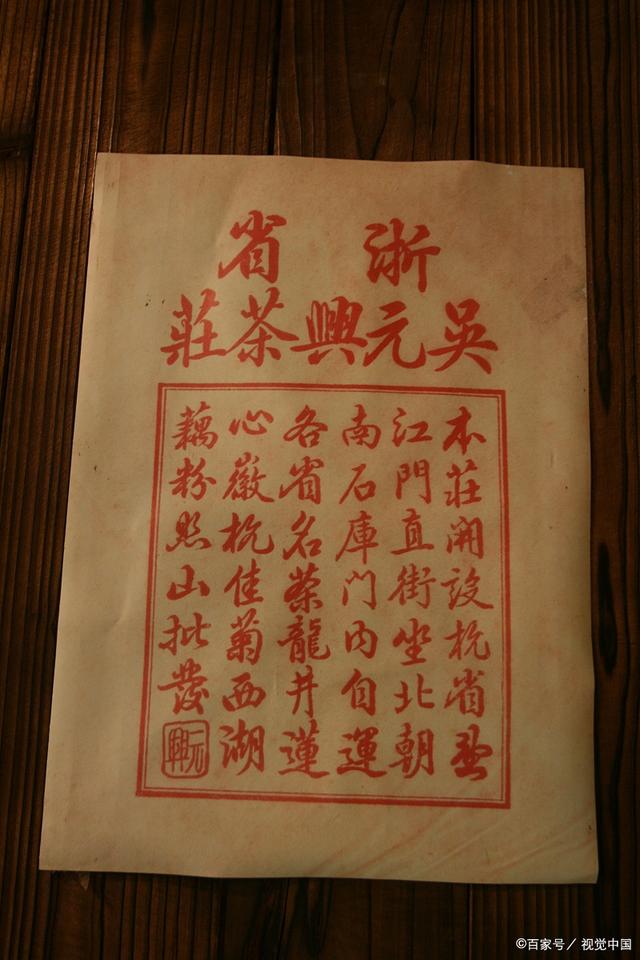 浙省
吳元興茶莊
本莊開設杭省望
江門直街坐北朝
南石庫門內自運
各省名茶龍井蓮
心徽杭佳菊西湖
藕粉照山批發
元興
©百家号/视觉中国